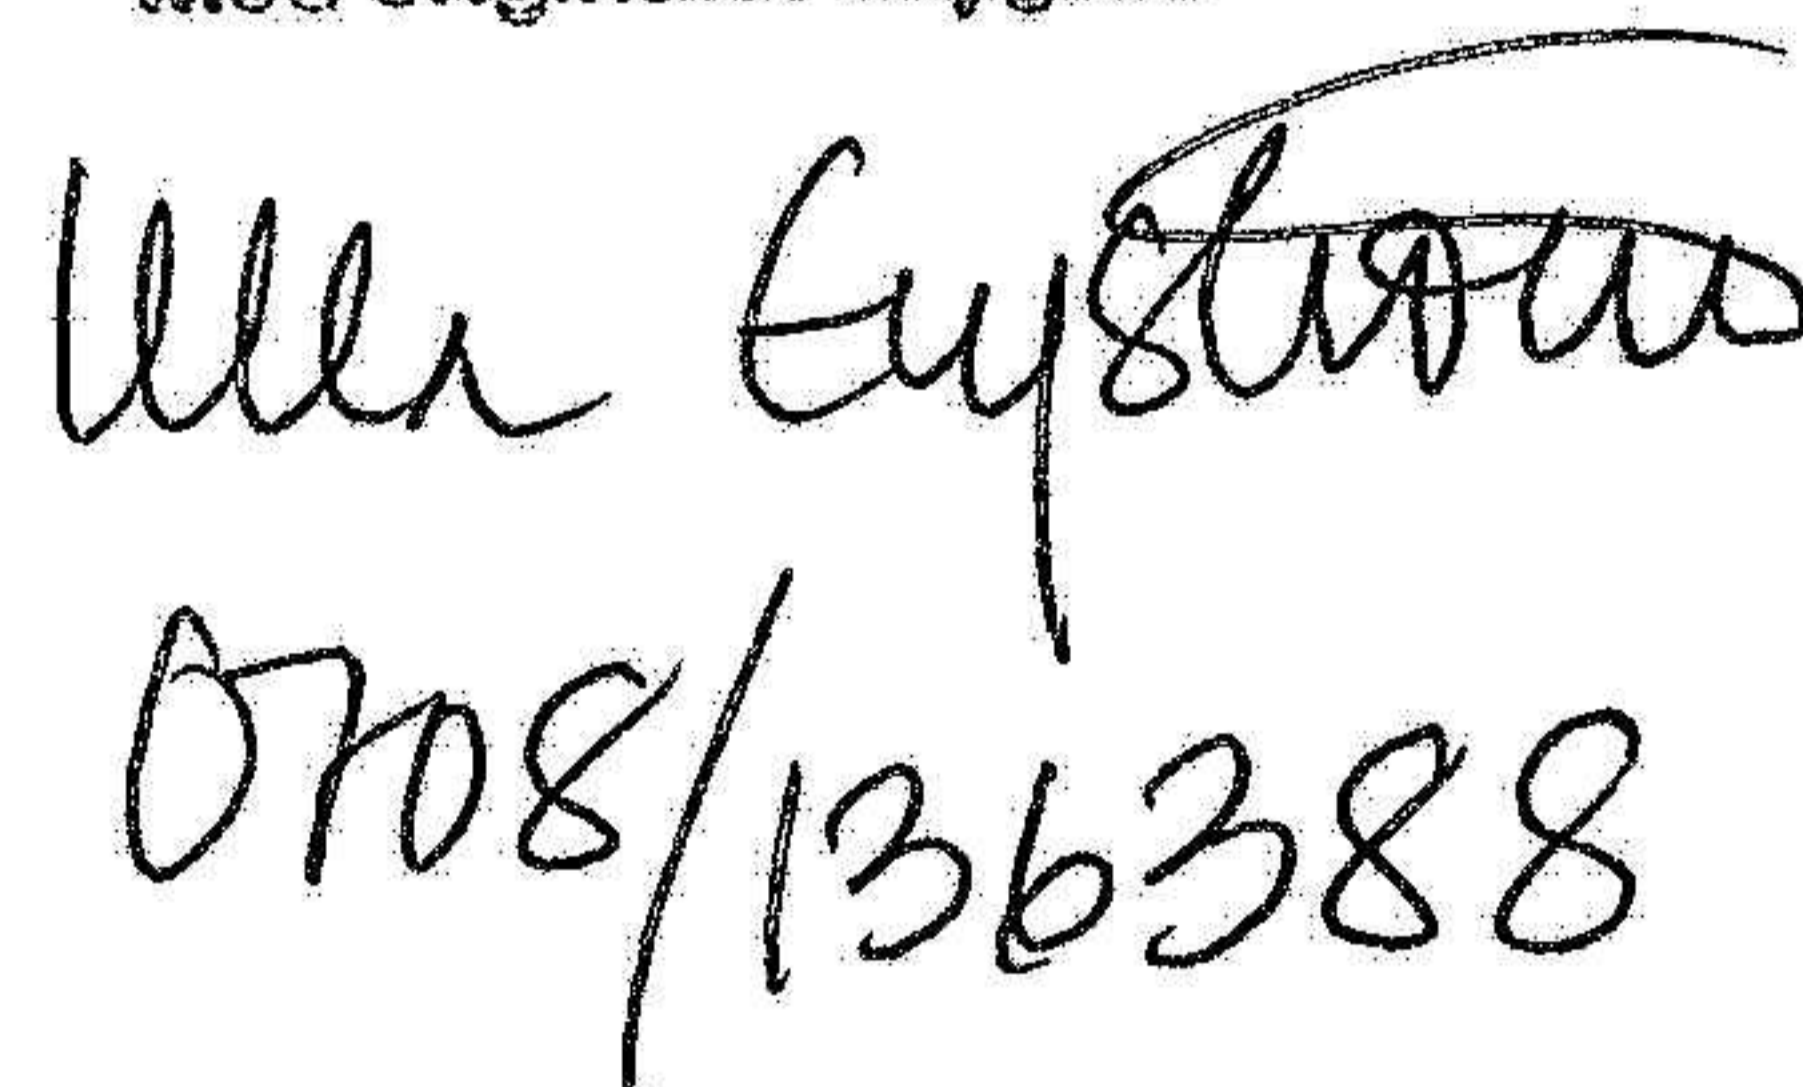 Ulla Engström
0708/136388